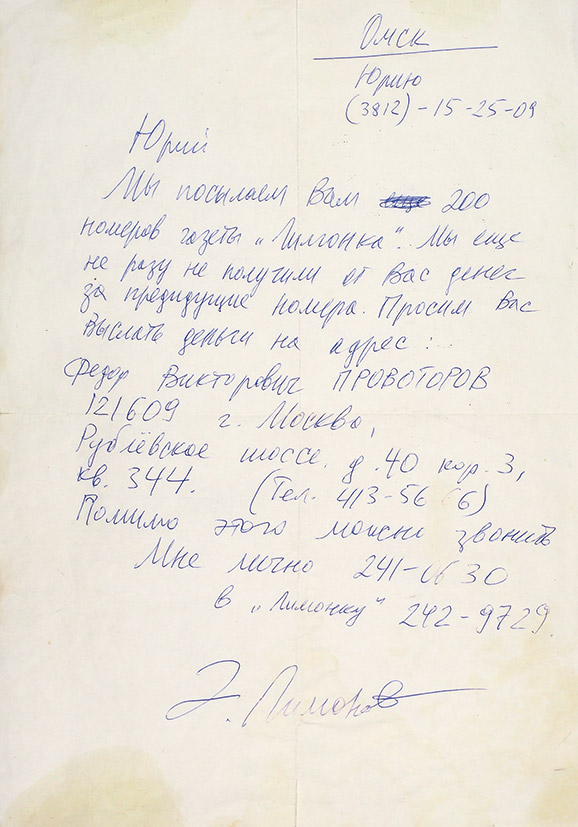 Омск
Юрию
(3812)-15-25-09
Юрий
Мы посылаем Вам 200
номеров газеты „Лимонка". Мы еще
не разу не получили от Вас денег
за предидущие номера. Просим Вас
выслать деньги на адрес:
Федор Викторович ПРОВОТОРОВ
121609 г. Москва,
Рублёвское шоссе, д.40 кор.3,
кв. 344. (Тел. 413-56 66)
Помимо этого можно звонить
Мне лично 241-0630
в „Лимонку" 242-9729
Э. Лимонов